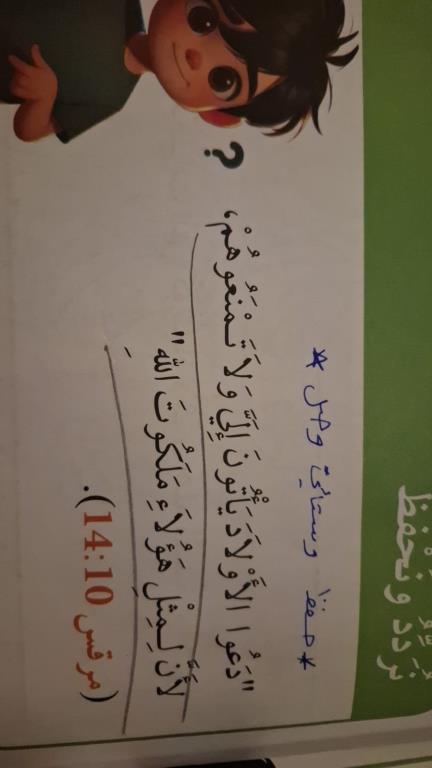 نُرَدِّدُ ونحفظ
* حفظ *
؟
"دَعُوا الأَوْلاَدَ يَأْتُونَ إِلَيَّ وَلاَ تَمْنَعُوهُمْ،
لأَنَّ لِمِثْلِ هؤُلاَءِ مَلَكُوتَ اللهِ"
(مرقس 14:10).